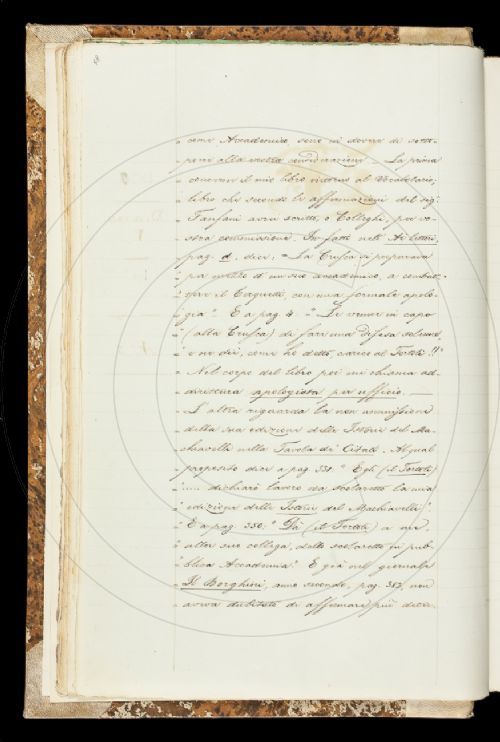 " come Accademico, sono in dovere di sotto-
" porre alla vostra considerazione. — La prima
" concerne il mio libro intorno al Vocabolario,
" libro che secondo le affermazioni del sig.
" Fanfani avrei scritto, o Colleghi, per vo-
" stra commissione. Infatti nell' Ai lettori,
" pag. d. dice: " La Crusca si preparava
" per mezzo di un suo accademico, a combat-
" tere il con una formale apolo-
" gia ". E a pag. 4. " Le venne in capo
" (alla Crusca) di fare una difesa solenne,
" e ne diè, come ho detto, carico al Tortoli!!"
" Nel corpo del libro poi mi chiama ad-
" dirittura apologista per ufficio. —
" L' altra riguarda la non ammissione
" della sua edizione delle Istorie del Ma-
" chiavelli nella Tavola de' Citati. A qual
" proposito dice a pag. 331. " Egli (il Tortoli)
" .... dichiarò lavoro da scolaretto la mia
" edizione delle Istorie del Machiavelli ".
" E a pag. 350: " Dà (il Tortoli) a me,
" altra sua collega, dello scolaretto in pub-
" blica Accademia." E già nel giornale
" Il Borghini, anno secondo, pag. 383, non
" aveva dubitato di affermare più